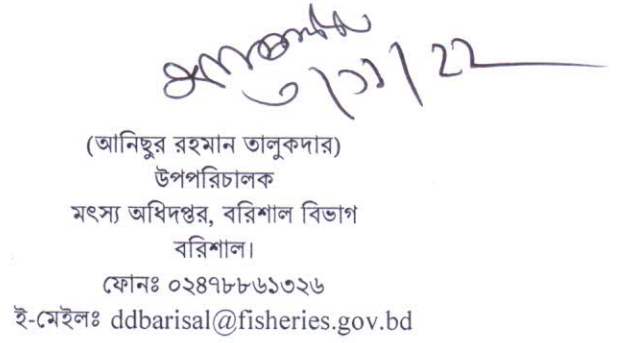 ৩/১১/২২
(আনিছুর রহমান তালুকদার)
উপপরিচালক
মৎস্য অধিদপ্তর, বরিশাল বিভাগ
বরিশাল।
ফোনঃ ০২৪৭৮৮৬১৩২৬
ই-মেইলঃ ddbarisal@fisheries.gov.bd